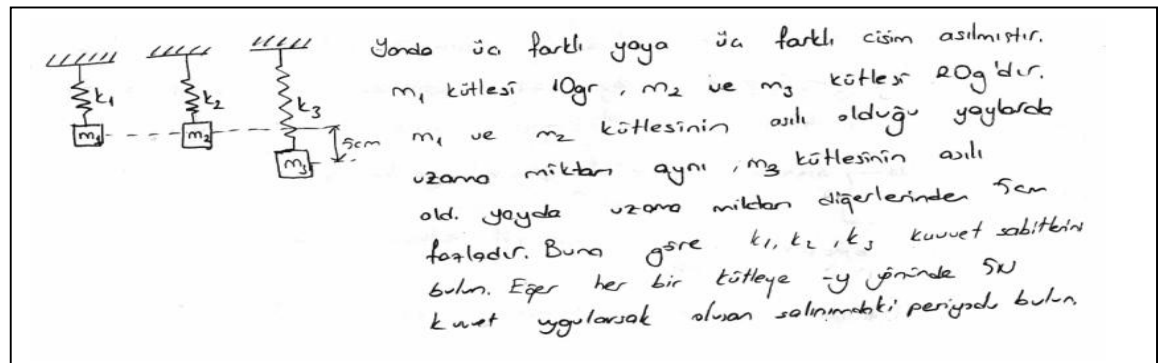 Yanda üç farklı yaya üç farklı cisim asılmıştır.
m₁ kütlesi 10gr, m₂ ve m₃ kütlesi 20g'dır.
m₁ ve m₂ kütlesinin asılı olduğu yaylarda
uzama miktarı aynı, m₃ kütlesinin asılı
old. yayda uzama miktarı diğerlerinden 5cm
fazladır. Buna göre k₁, k₂, k₃ kuvvet sabitlerini
bulun. Eğer her bir kütleye -y yönünde 5N
kuvvet uygularsak oluşan salınımdaki periyodu bulun.
k₁
k₂
k₃
m₁
m₂
5cm
m₃